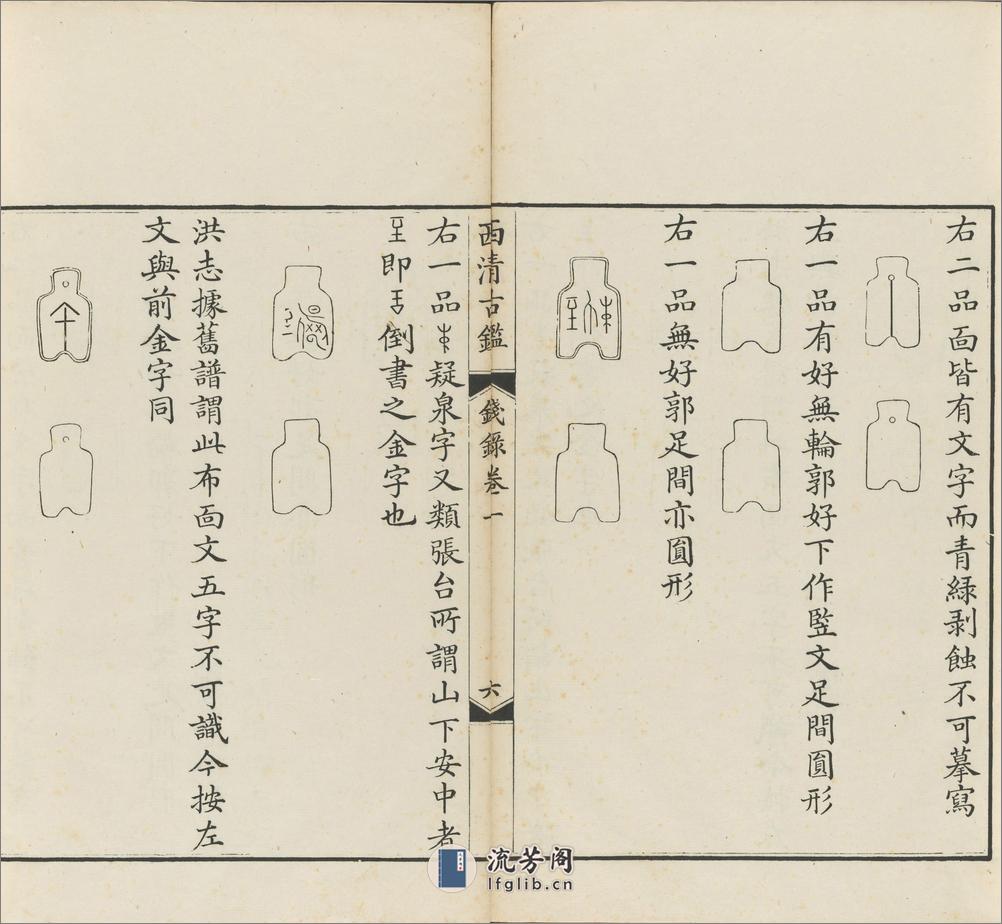 右二品面皆有文字而青緑剥蝕不可摹寫
右一品有好無輪郭好下作竪文足間圓形
右一品無好郭足間亦圓形
西清古鑑
錢錄卷一
六
右一品 疑泉字又類張台所謂山下安中者
即 倒書之金字也
洪志據舊譜謂此布面文五字不可識今按左
文與前金字同
流芳阁
lfglib.cn